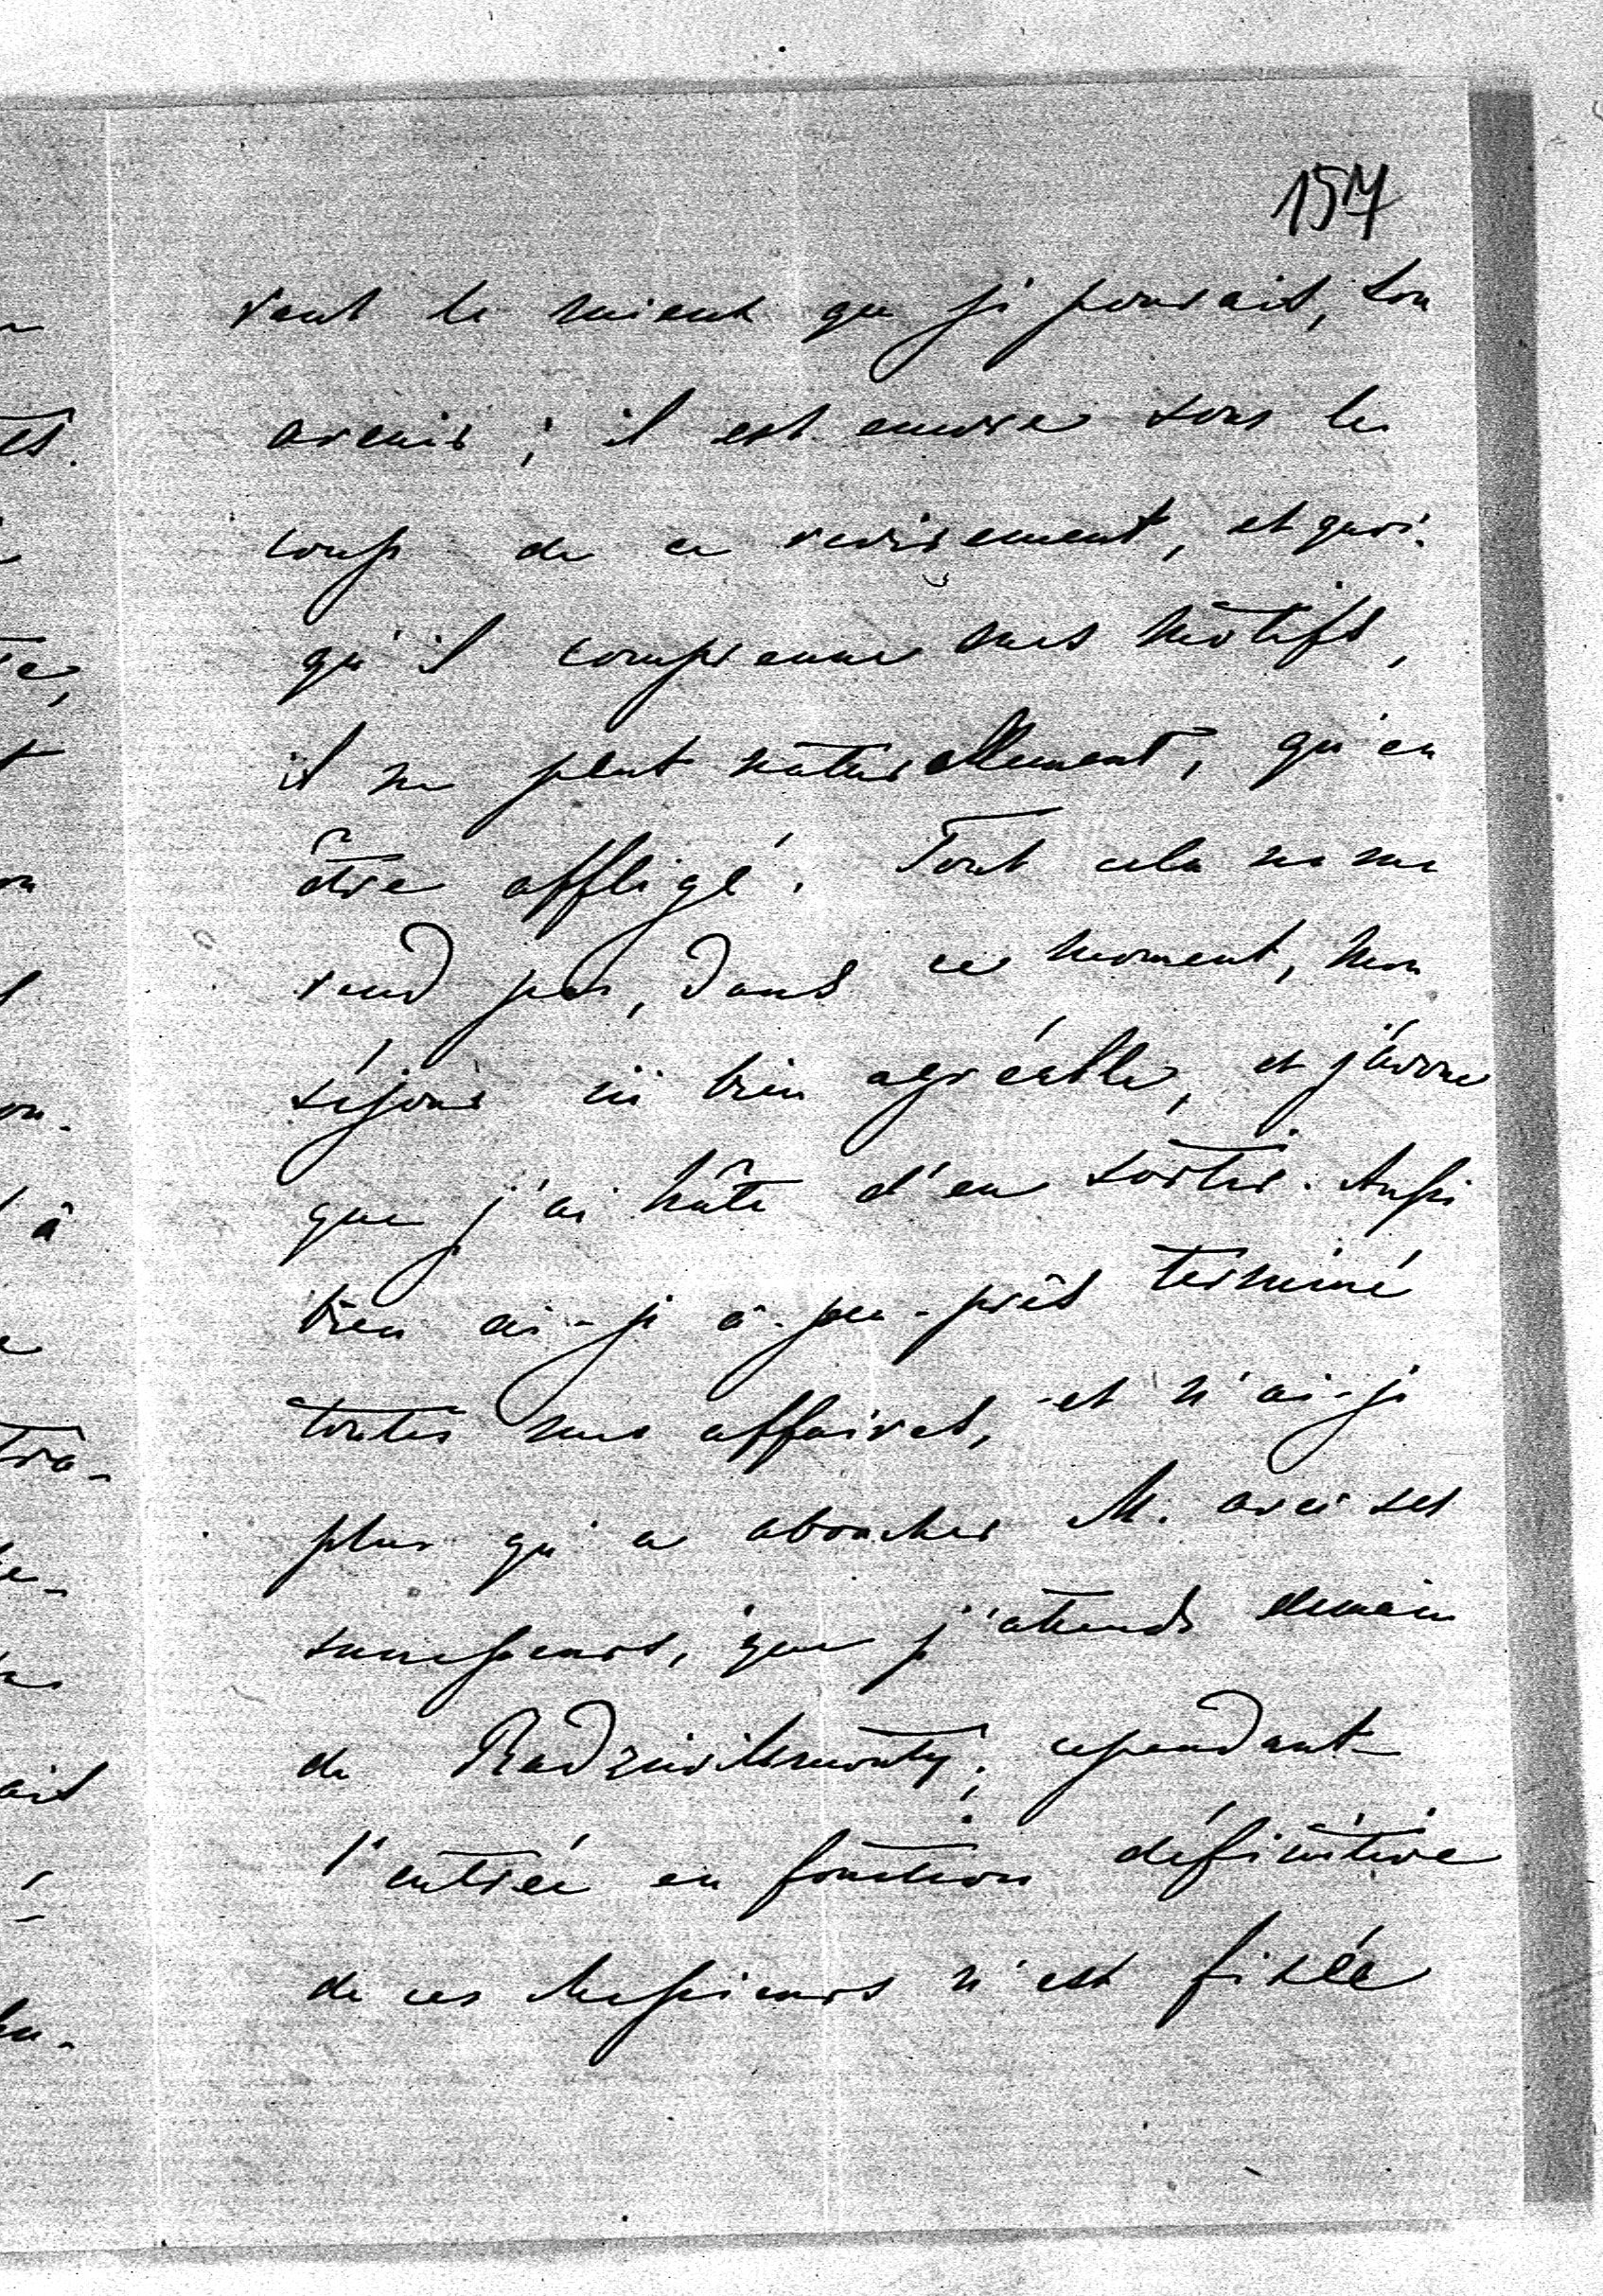 157
rant le mieux que je pourrais, son
avenir ; il est encore sous le
coup de ce revirement, et quoi-
qu'il comprenne mes motifs,
il ne peut naturellement, qu'en
être affligé. Tout cela ne me
rend pas, dans ce moment, mon
séjour ici bien agréable, et j'avoue
que j'ai hâte d'en sortir. Aussi
bien ai-je à-peu-près terminé
toutes mes affaires, et n'ai-je
plus qu'a aboucher M. avec ses
successeurs, que j'attends demain
de Radziwillmonty ; cependant
l'entrée en fonction définitive
de ces Messieurs n'est fixée